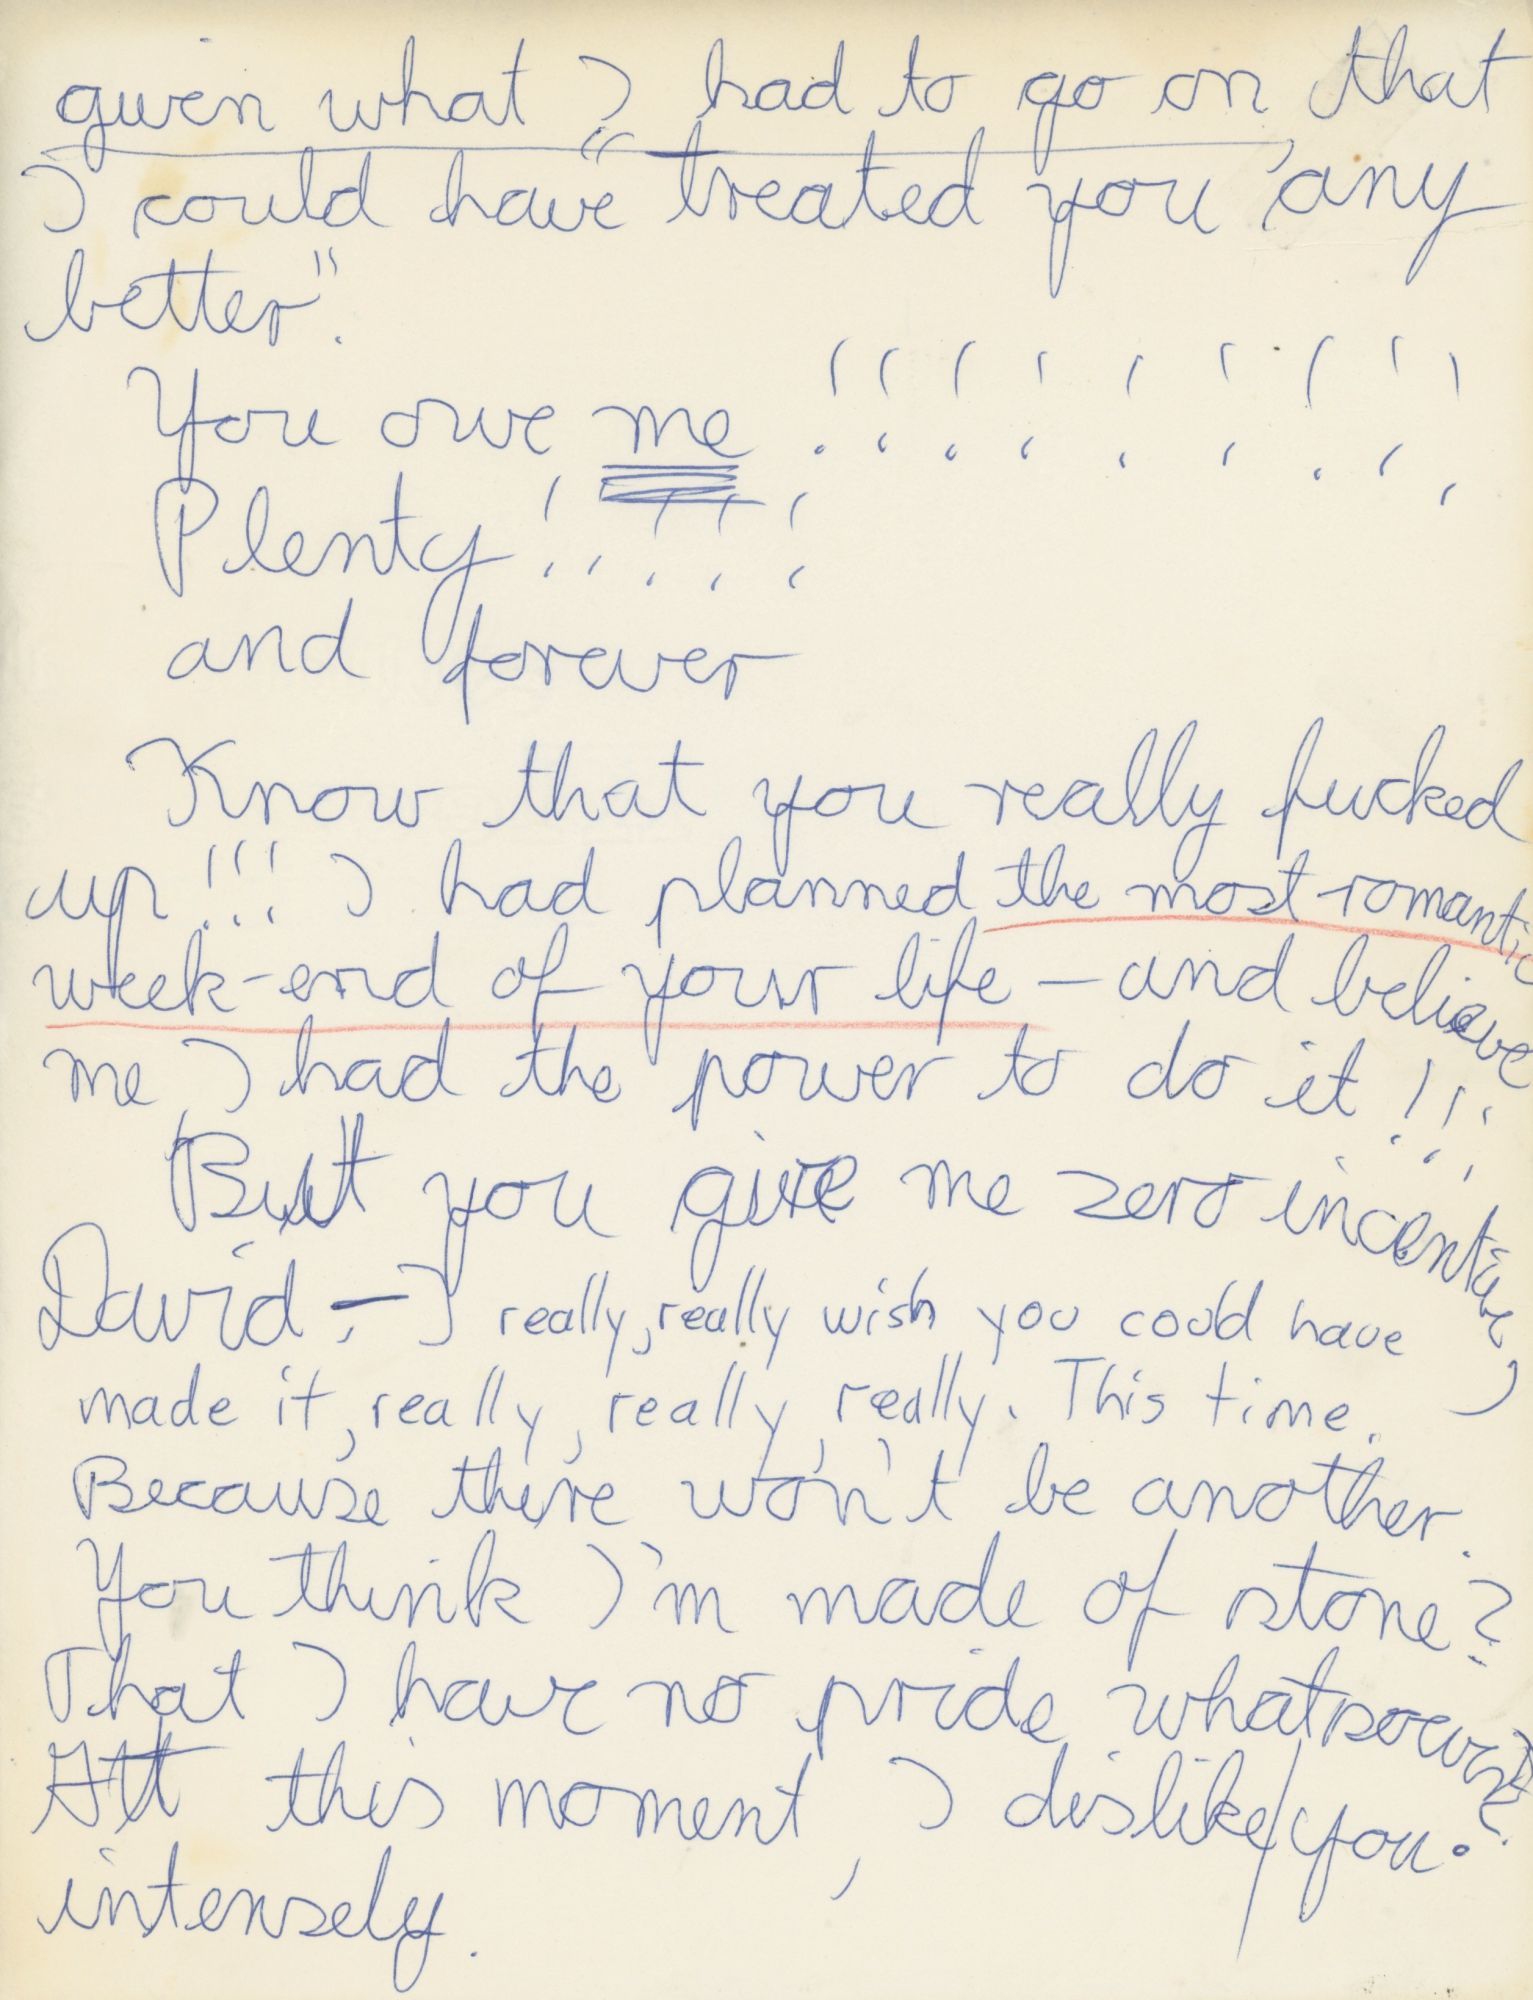 given what I had to go on, that
I could have treated you any
better".
You owe me !!!!!!!!!
Plenty !!!!!
and forever
Know that you really fucked
up!!! I had planned the most romantic
week-end of your life – and believe
me, I had the power to do it!!!
But you give me zero incentive,
David – I really, really wish you could have
made it, really, really, really. This time.
Because there won't be another.
You think I'm made of stone?
That I have no pride whatsoever?
At this moment, I dislike you.
intensely.